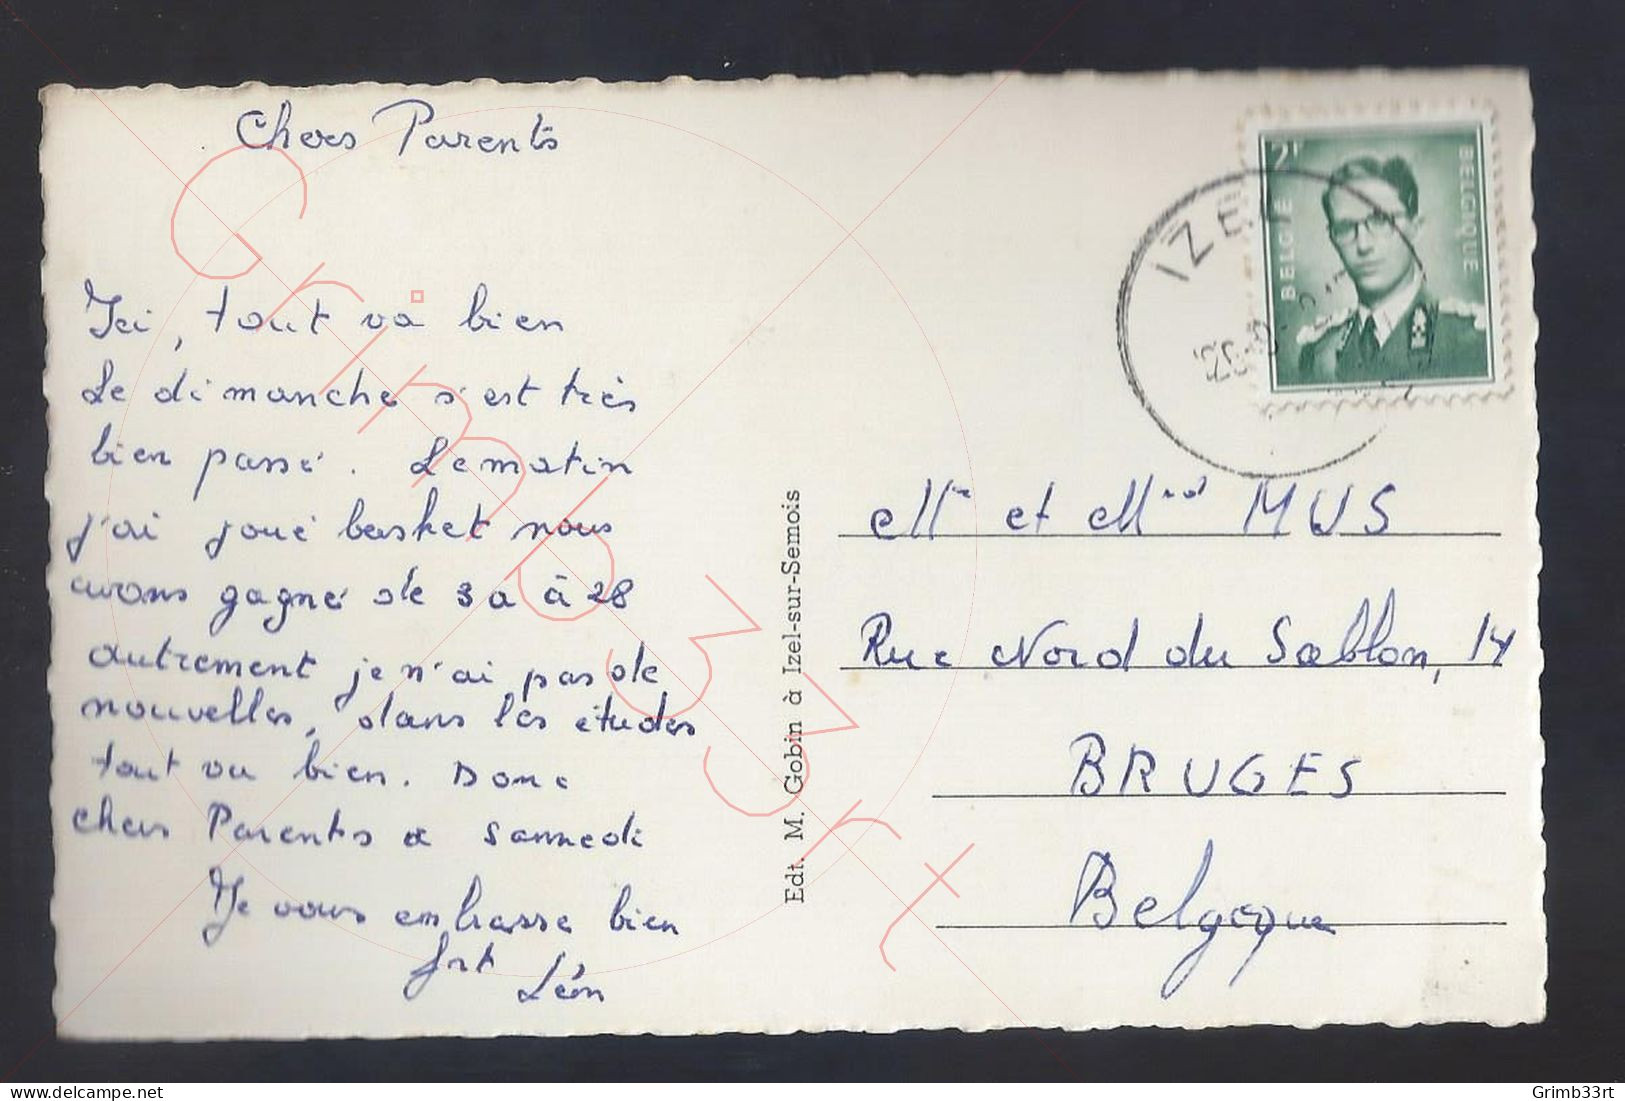 Chers Parents
Ici, tout va bien
Le dimanche s'est très
bien passé. Le matin
j'ai joué basket nous
avons gagné de 30 à 28
autrement je n'ai pas de
nouvelles, dans les études
tout va bien. Donc
chers Parents à samedi
Je vous embrasse bien
fort
Léon
Edt. M. Gobin à Izel-sur-Semois
IZEL
2F
BELGIE
BELGIQUE
Mr et Mme MUS
Rue Nord du Sablon, 14
BRUGES
Belgique
Grimb33rt
delcampe.net
Grimb33rt